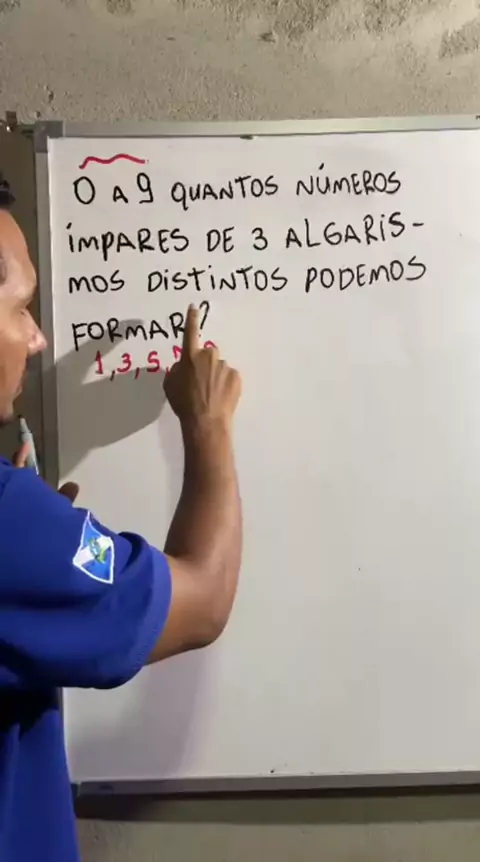 0 A 9 QUANTOS NÚMEROS
ÍMPARES DE 3 ALGARIS-
MOS DISTINTOS PODEMOS
FORMAR?
1, 3, 5,